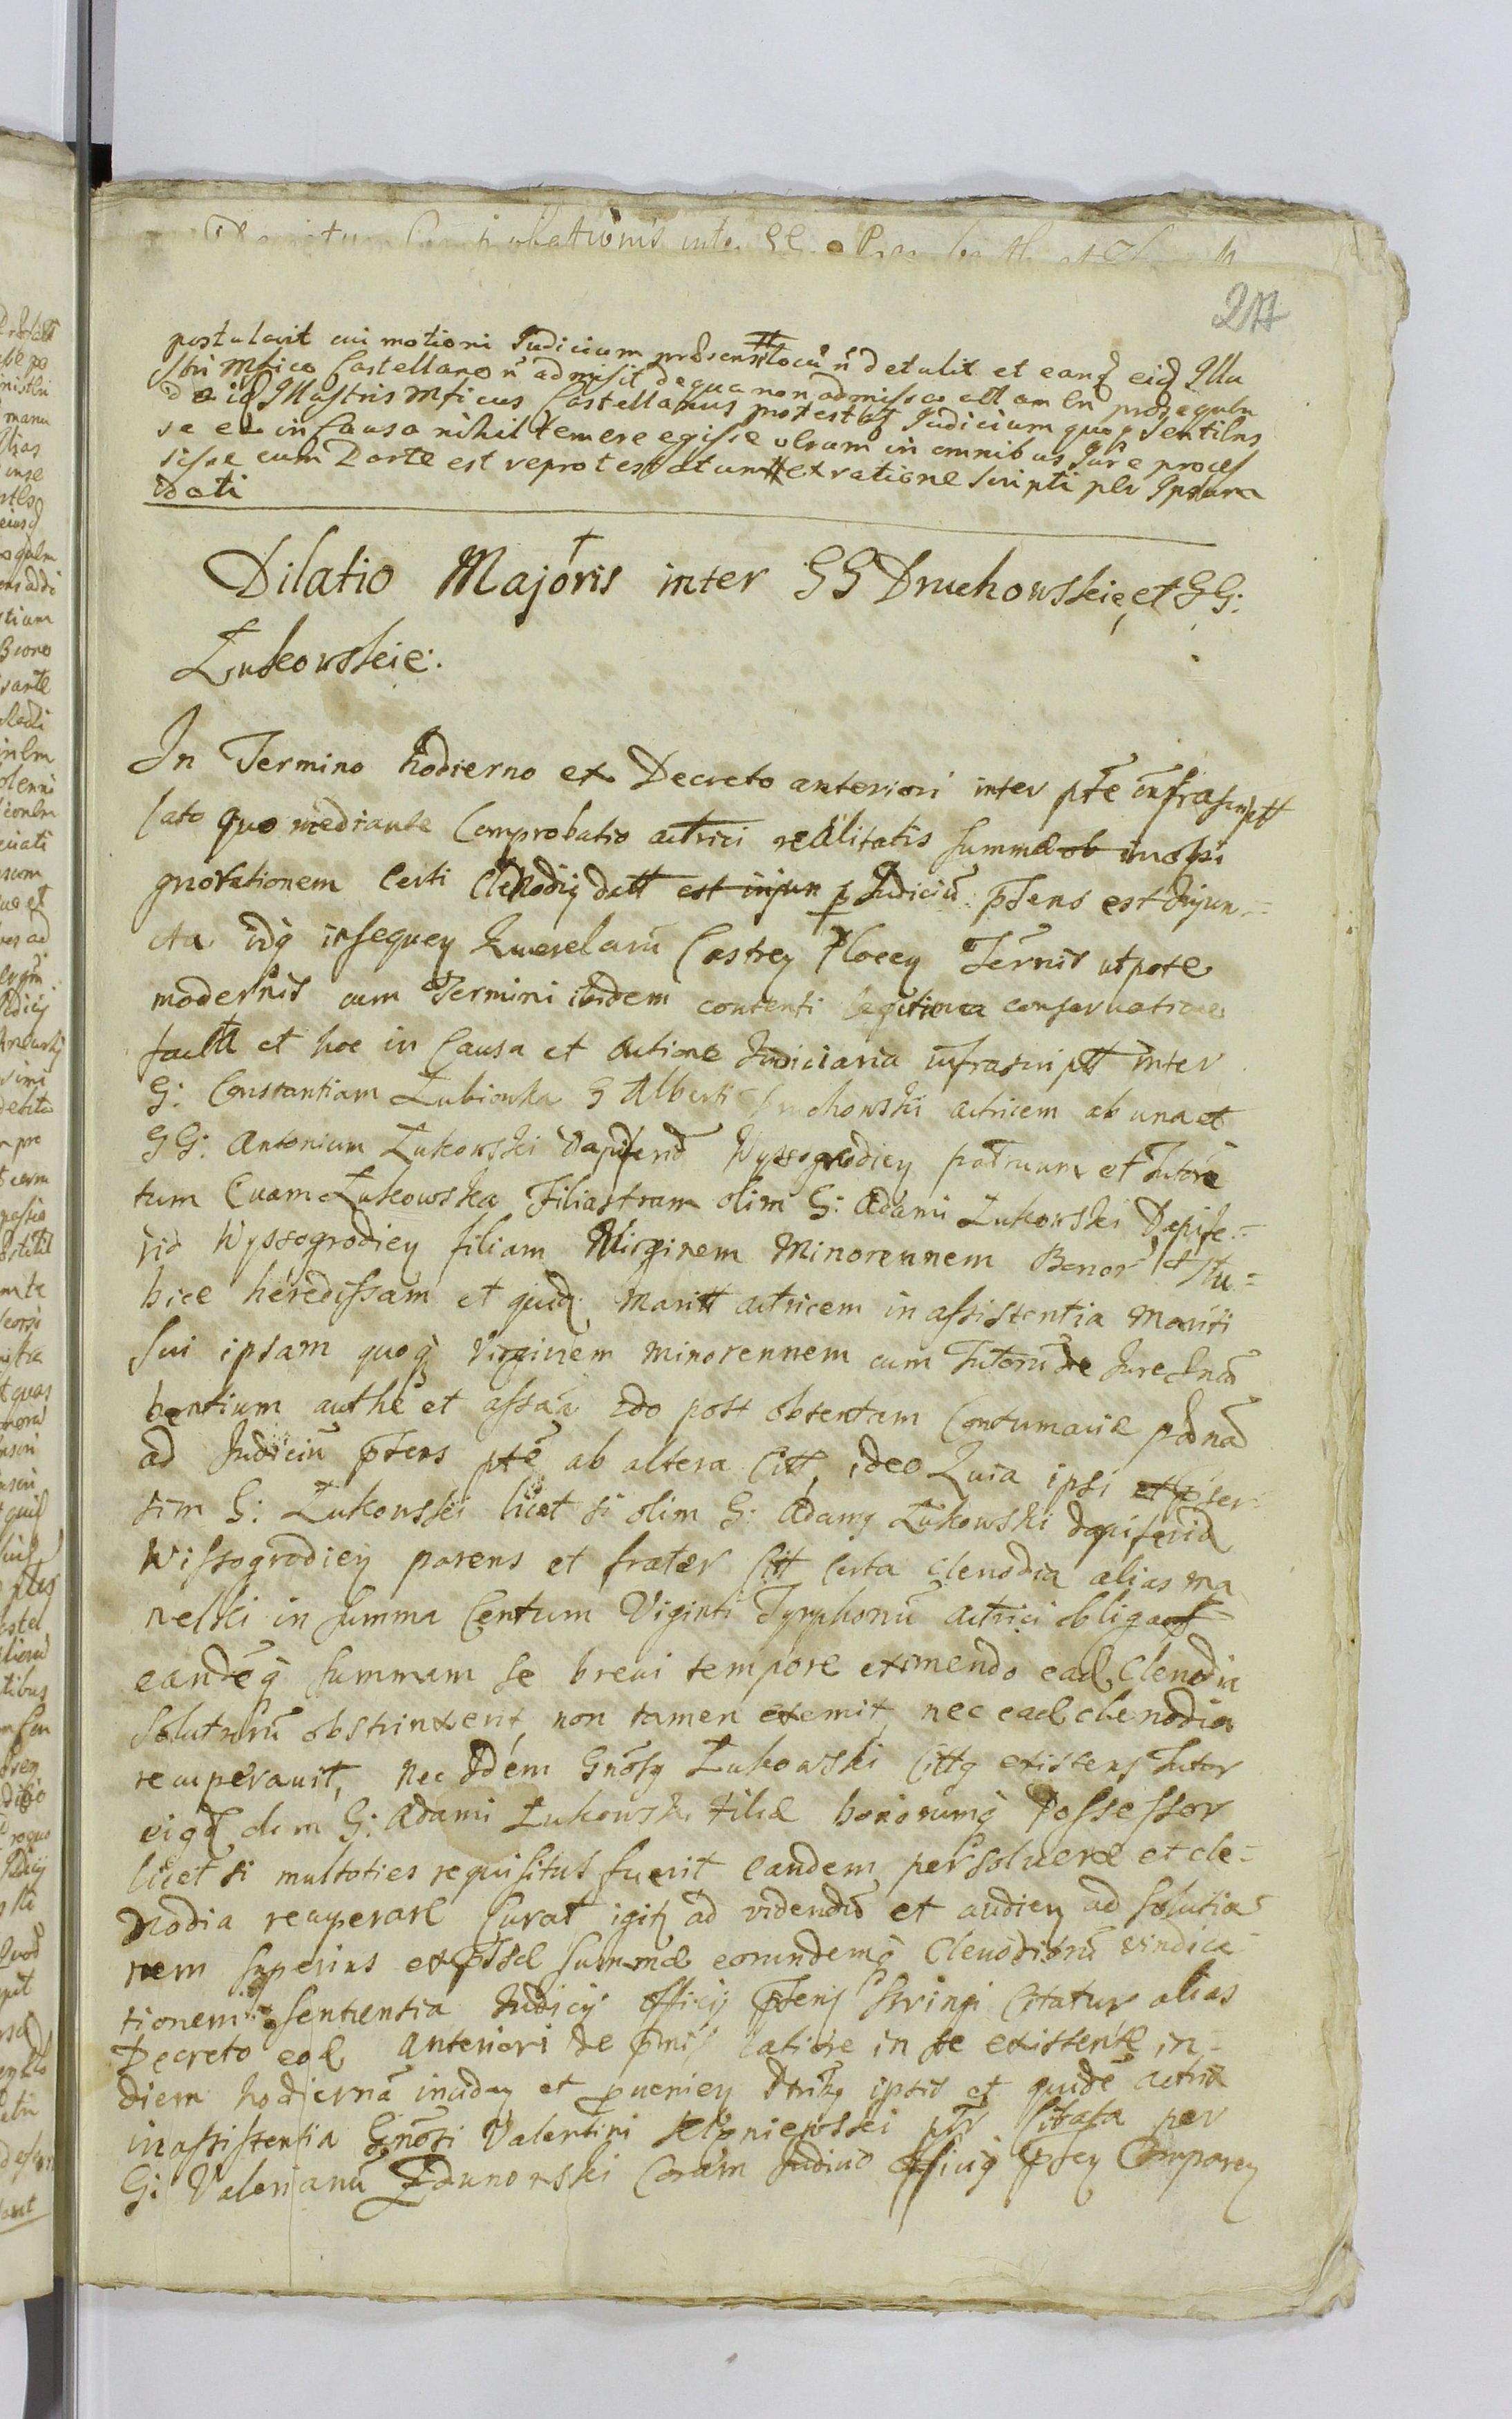 217
postulavit cui motioni Judicium præsens locū ñ detulit et eanq eiq Illu
stri Mfico Castellano ñ admisit de qua non admissa all am
idq Illustris Mficus Castellanus protest Judicium quoq
se ea in Causa nihil temere egisse verum in omnibus Jure proces
sisse cum Parte est reprotestatum et ratione scripti per Ipsum
dati
Dilatio Majoris inter GG Druchowskie, et GG:
Łukowskie:
In Termino hodierno ex Decreto anteriori inter ptē infrascriptt
lato quo mediante Comprobatio actrici realitatis summæ ob inoppi
gnorationem Certi Clenodij datt est injun p Judiciū pñens est Injun=
cta idq insequey Querelarū Castrey Plocey Termis utpote
modernis cum Termini ibidem contenti legitima conservatione
factâ et hoc in Causa et Actione Judiciaria infrascriptt inter
G: Constantiam Łubionka G Alberti Druchowski actricem ab una et
GG: Antonium Łukowski Dapiferid Wyssogrodiey patruum et Tutorē
tum Evam Łukowska Filiastram olim G: Adami Łukowski Dapife=
rid Wyssogrodiey filiam Virginem Minorennem Bonor
hæredissam et quidq Maritt actricem in assistentia Mariti
sui ipsam quoq Virginem minorennem cum Tutorū de Jure
bentium authē et assa post obtentam Contumaciæ pænā
ad Judiciū pñens ptē ab altera Citt, ideo Quia ipsi
sim G: Łukowski licet si olim G: Adamq Łukowski dapiferid
Wissogrodiey parens et frater Citt Certa Clenodia alias ma
nelki in Summa Centum Viginti Tynphonū actrici obligat
eandēq summam se brevi tempore eximendo ead Clenodia
soluturū obstrinxerit non tamen exemit, nec ead clenodia
recuperavit, nec Idem Gnōsq Łukowski Cittq existens Tutor
eiqd olim G: Adami Łukowski filiæ bonorumq Possessor
licet si multoties requisitus fuerit eandem persoluere et cle=
nodia recuperare Curat igitq ad videndū et audiey ad solutio
nem superius expssæ summæ eorundemq Clenodiorū vindica
tionem sententia Judicij officij pñens stringi Citatur alias
Decreto eod anteriori de latiore in se existente in=
diem hodiernā inciday et pveniey ipsis et quidē actrix
in assistentia Gnōsi Valentini ptr Citata per
G: Valerianū Zdunowski Coram Judicio Officioq pñey Comparey